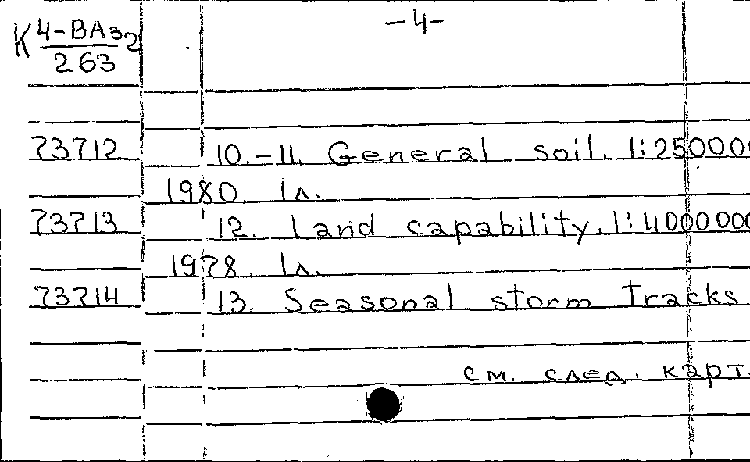 -4-
К 4-ВАз2
263
73712 10.-11. General soil. 1:2500000
1980 1л.
73713 12. Land capability. 1:4000000
1978 1л.
73714 13. Seasonal storm tracks
см. след. карт.